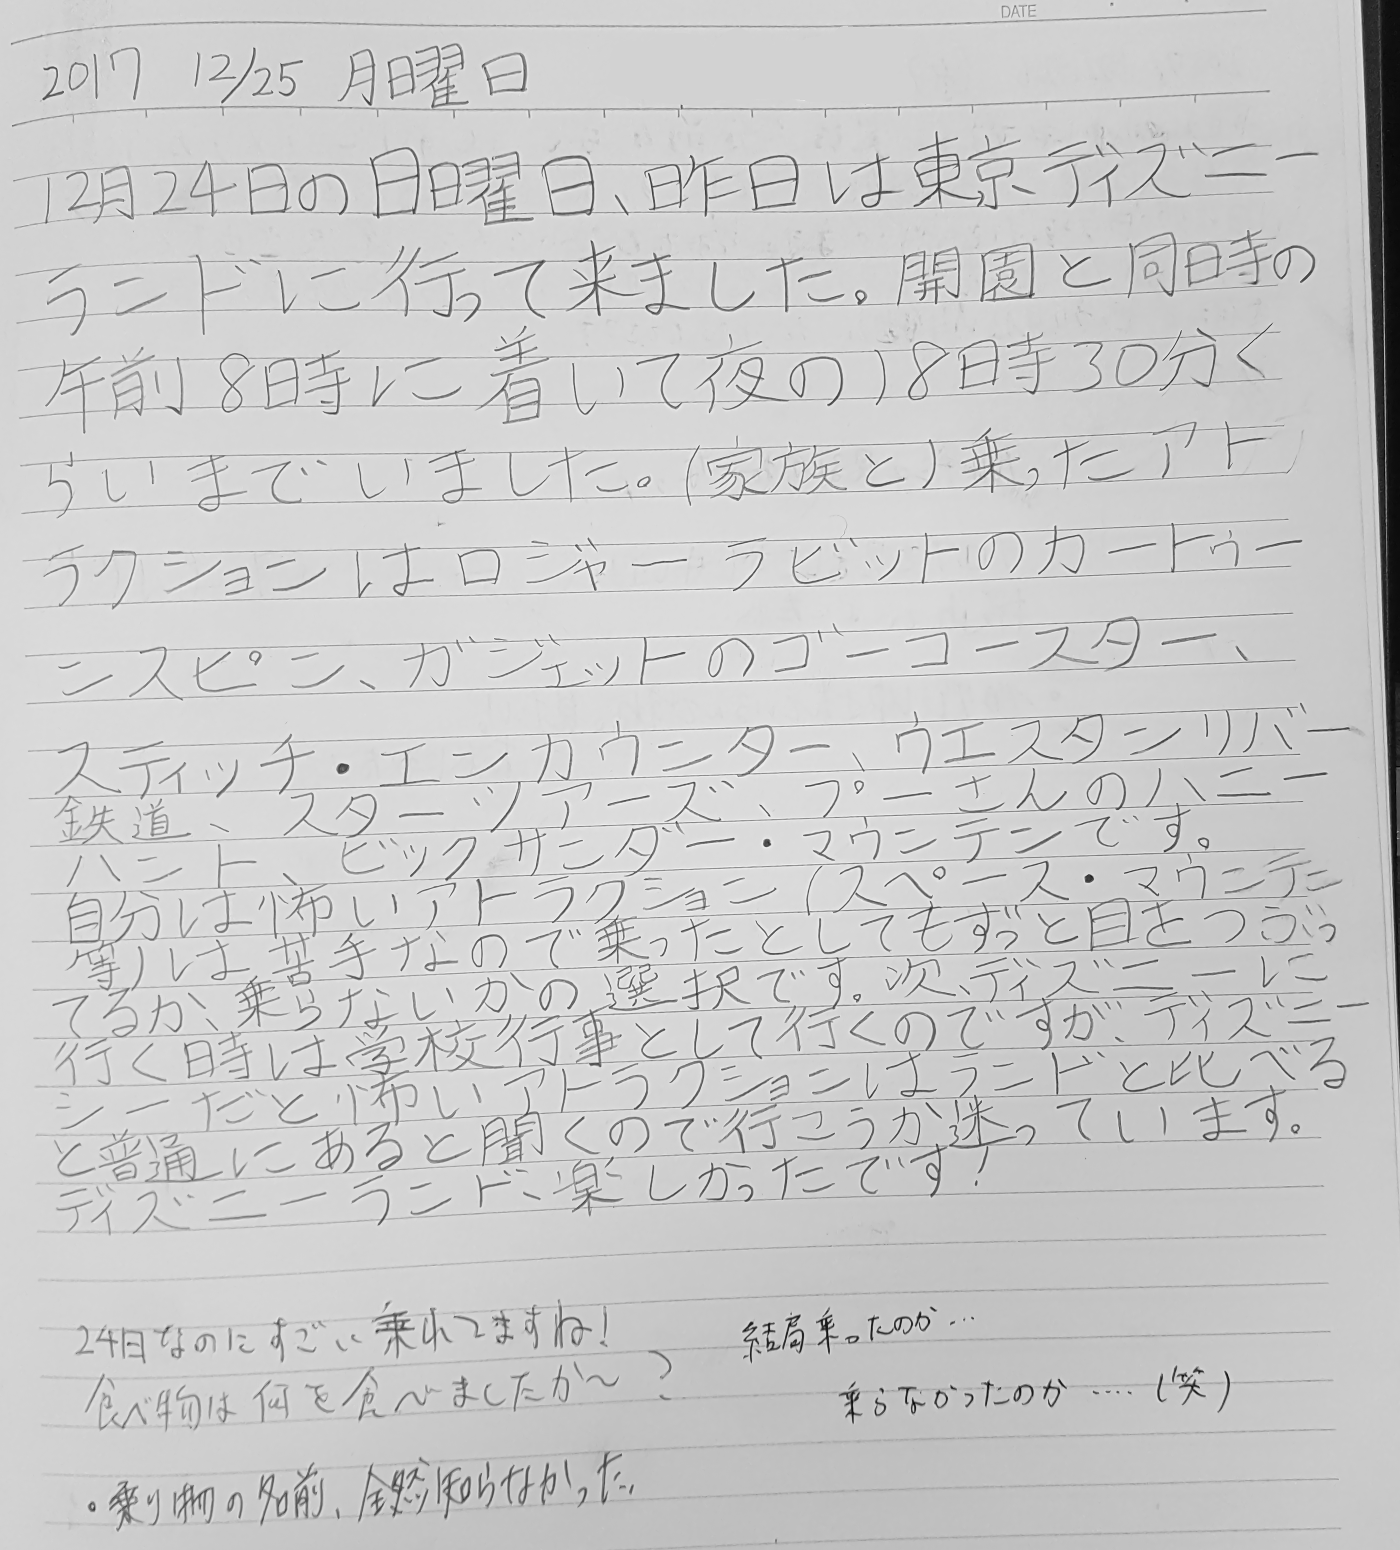 DATE
2017 12/25 月曜日
12月24日の日曜日、昨日は東京ディズニー
ランドに行って来ました。開園と同時の
午前8時に着いて夜の18時30分く
らいまでいました。(家族と)乗ったアト
ラクションはロジャーラビットのカートゥー
ンスピン、ガジェットのゴーコースター、
スティッチ・エンカウンター、ウエスタンリバー
鉄道、スターツアーズ、プーさんのハニー
ハント、ビックサンダー・マウンテンです。
自分は怖いアトラクション(スペース・マウンテン
等)は苦手なので乗ったとしてもずっと目をつぶっ
てるか、乗らないかの選択です。次、ディズニーに
行く時は学校行事として行くのですが、ディズニー
シーだと怖いアトラクションはランドと比べる
と普通にあると聞くので行こうか迷っています。
ディズニーランド、楽しかったです!
24日なのにすごい乗れてますね!
結局乗ったのか…
食べ物は何を食べましたか〜?
乗らなかったのか……(笑)
・乗り物の名前、全然知らなかった。